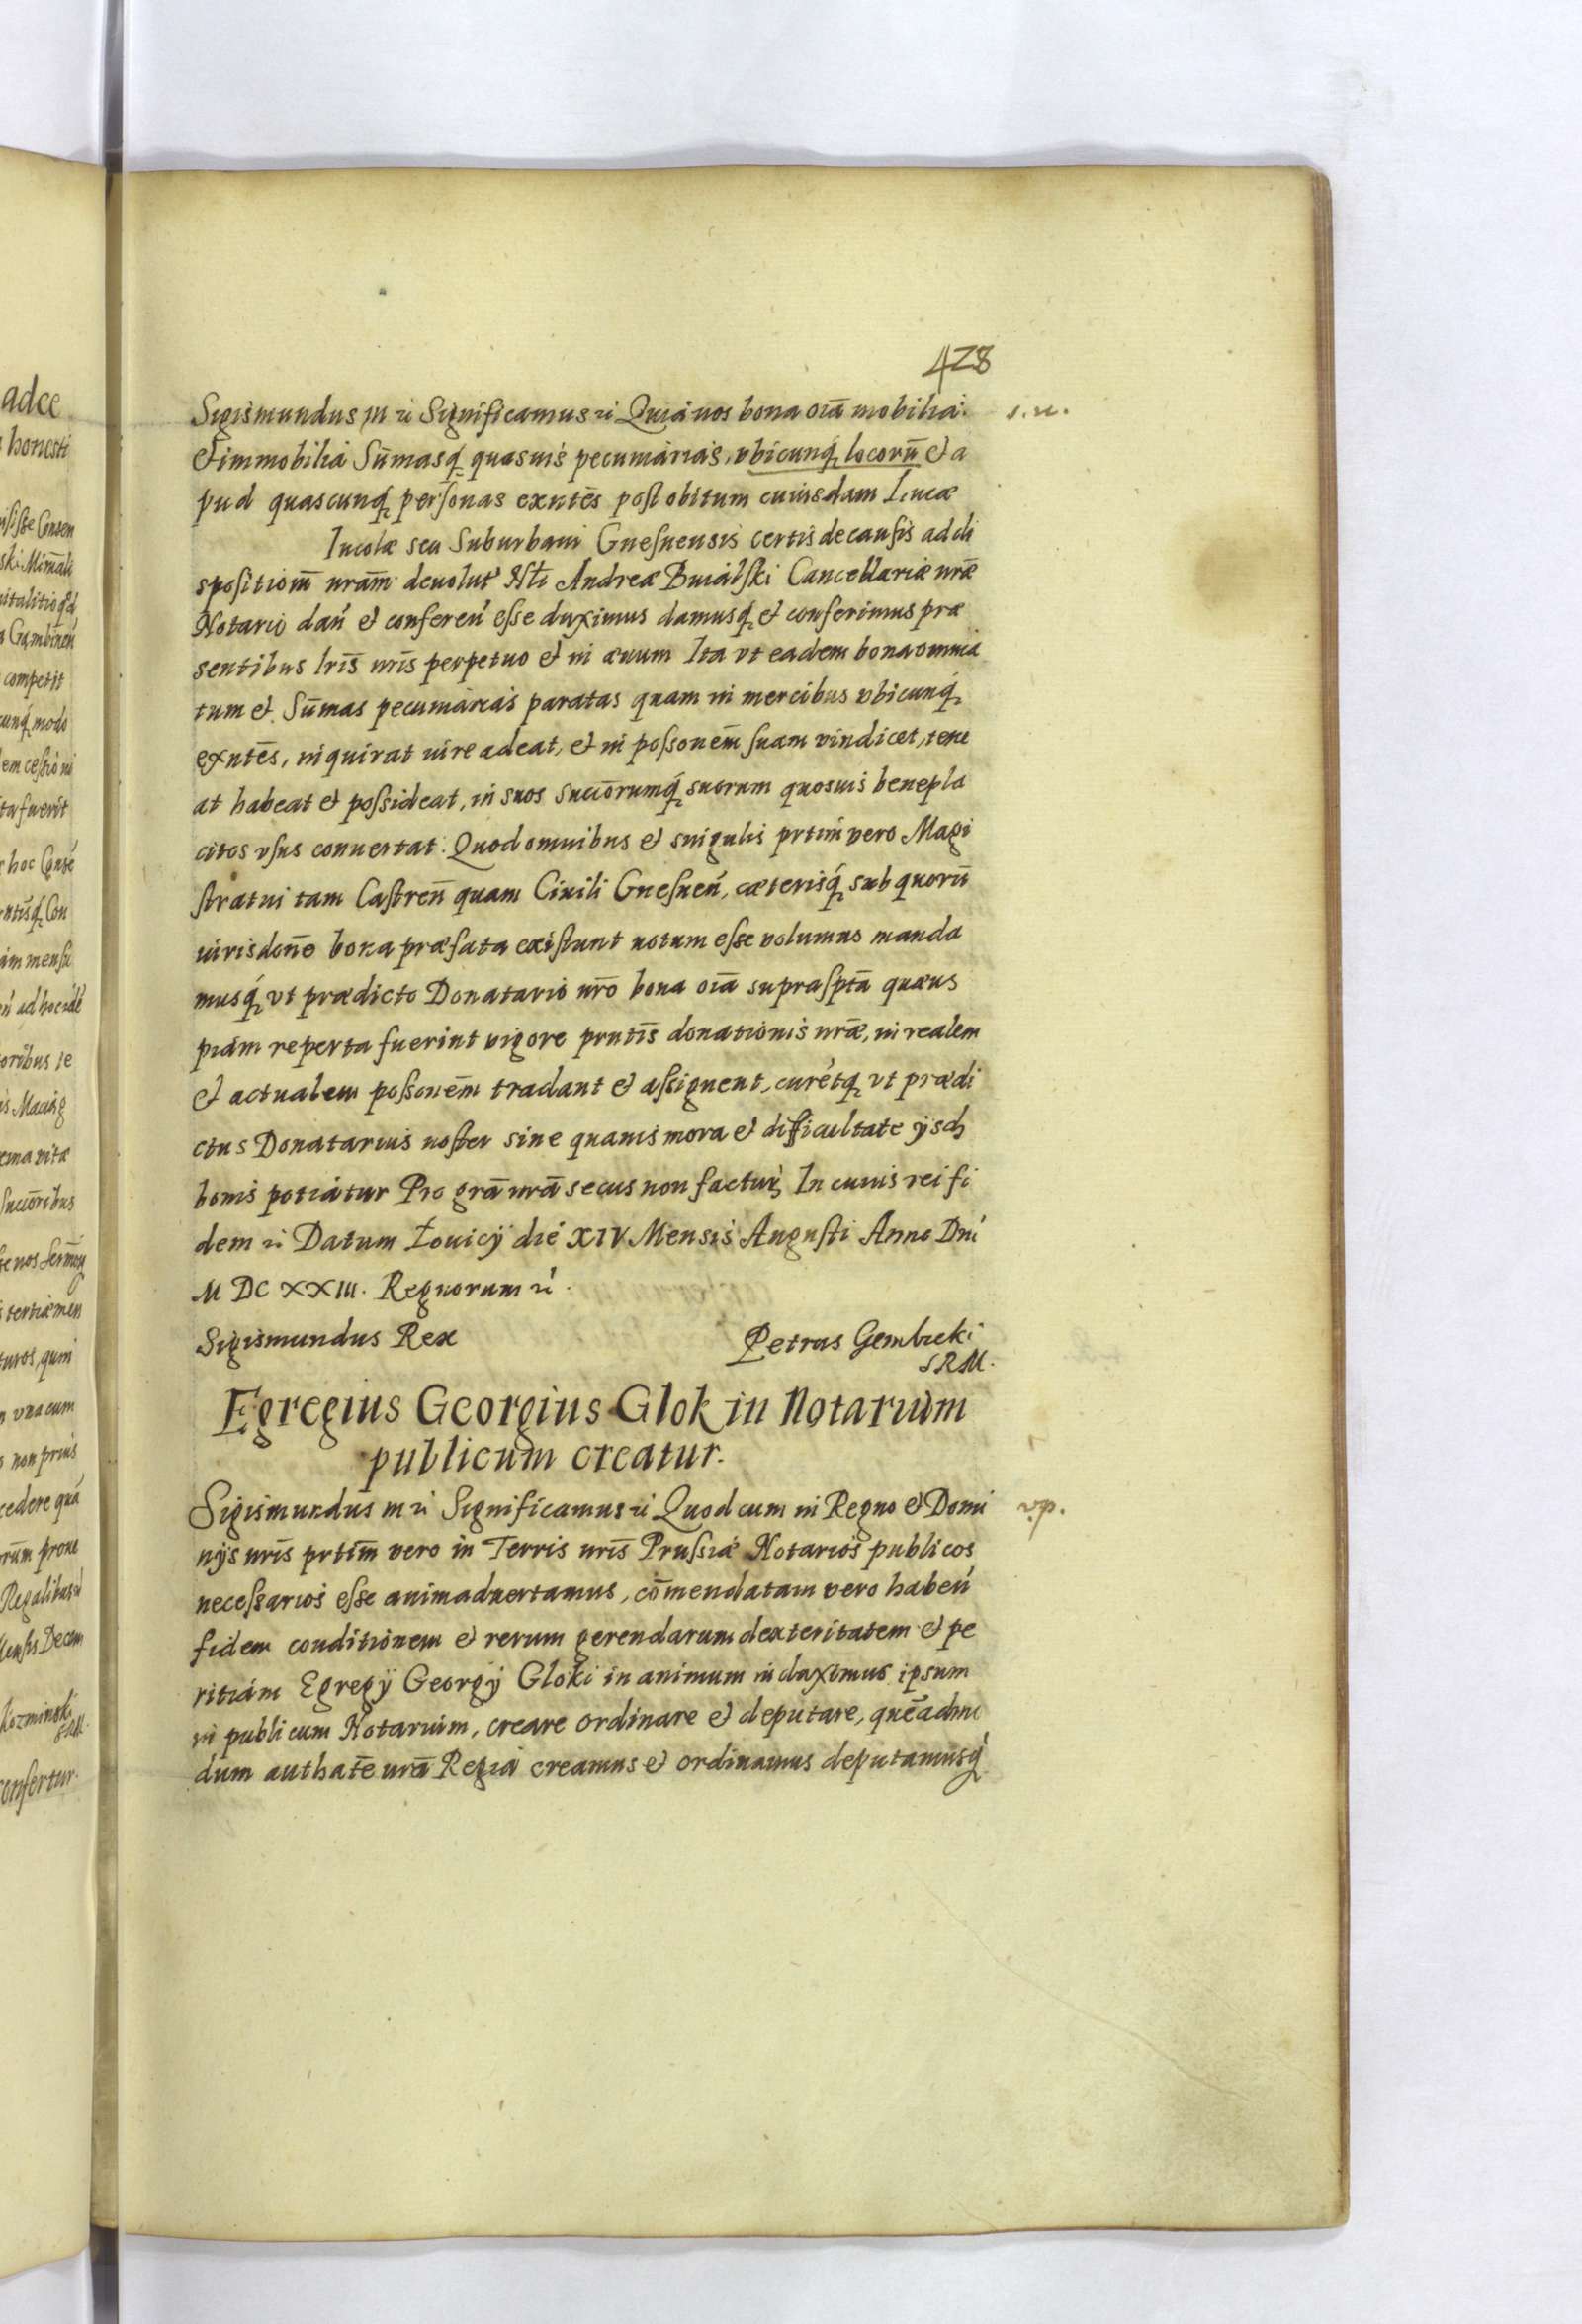 428
Sigismundus III ꝛc Significamus ꝛc Quia nos bona oīa mobilia s. n.
et immobilia Sūmasq; quasuis pecuniarias, vbicunq; locorū et a
pud quascunq; personas exntēs post obitum cuiusdam Lucæ
Incolæ seu Suburbani Gnesnensis certis de causis ad di
spositionē nrām deuolut' Nłi Andreæ Buialski Cancellariæ nrǣ
Notario dan̄ et conferen̄ esse duximus damusq; et conferimus præ
sentibus lrīs nrīs perpetuo et in æuum Ita vt eadem bona omnia
tum et Sūmas pecuniarias paratas quam in mercibus vbicunq;
exntēs, inquirat iure adeat, et in possonēm suam vindicet, tene
at habeat et possideat, in suos succōrumq; suorum quosuis benepla
citos vsus conuertat. Quod omnibus et singulis prtim̄ vero Magi
stratui tam Castren̄ quam Ciuili Gnesnen̄, cæterisq; sub quorū
iurisdonē bona præfata existunt notum esse volumus manda
musq; vt prædicto Donatario nrō bona oīa suprasptā quæus
piam reperta fuerint vigore prntīs donationis nrǣ, in realem
et actualem possonēm tradant et assignent, curētq; vt prædi
ctus Donatarius noster sine quauis mora et difficultate ijsdē
bonis potiatur Pro grā nrā secus non factur̄ In cuius rei fi
dem ꝛc Datum Łouicij die XIV Mensis Augusti Anno Dnī
M DC XXIII. Regnorum ꝛc.
Sigismundus Rex Petrus Gembicki
S.R.M.
Egregius Georgius Glok in Notarium
publicum creatur.
Sigismundus III ꝛc Significamus ꝛc Quod cum in Regno et Domi v.p.
nijs nrīs prtim̄ vero in Terris nrīs Prussiæ Notarios publicos
necessarios esse animaduertamus, cōmendatam vero haben̄
fidem conditionem et rerum gerendarum dexteritatem et pe
ritiam Egregij Georgij Gloki in animum induximus ipsum
in publicum Notarium, creare ordinare et deputare, quēadmo
dum authatē nrā Regia creamus et ordinamus deputamusq;